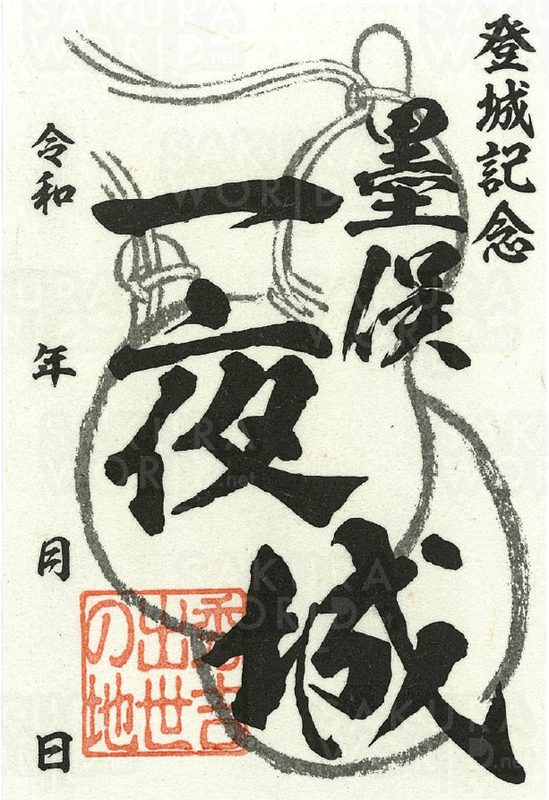 登城記念
墨俣
一夜城
令和 年 月 日
秀吉
出世
の地
SAKURA
WORLD.net